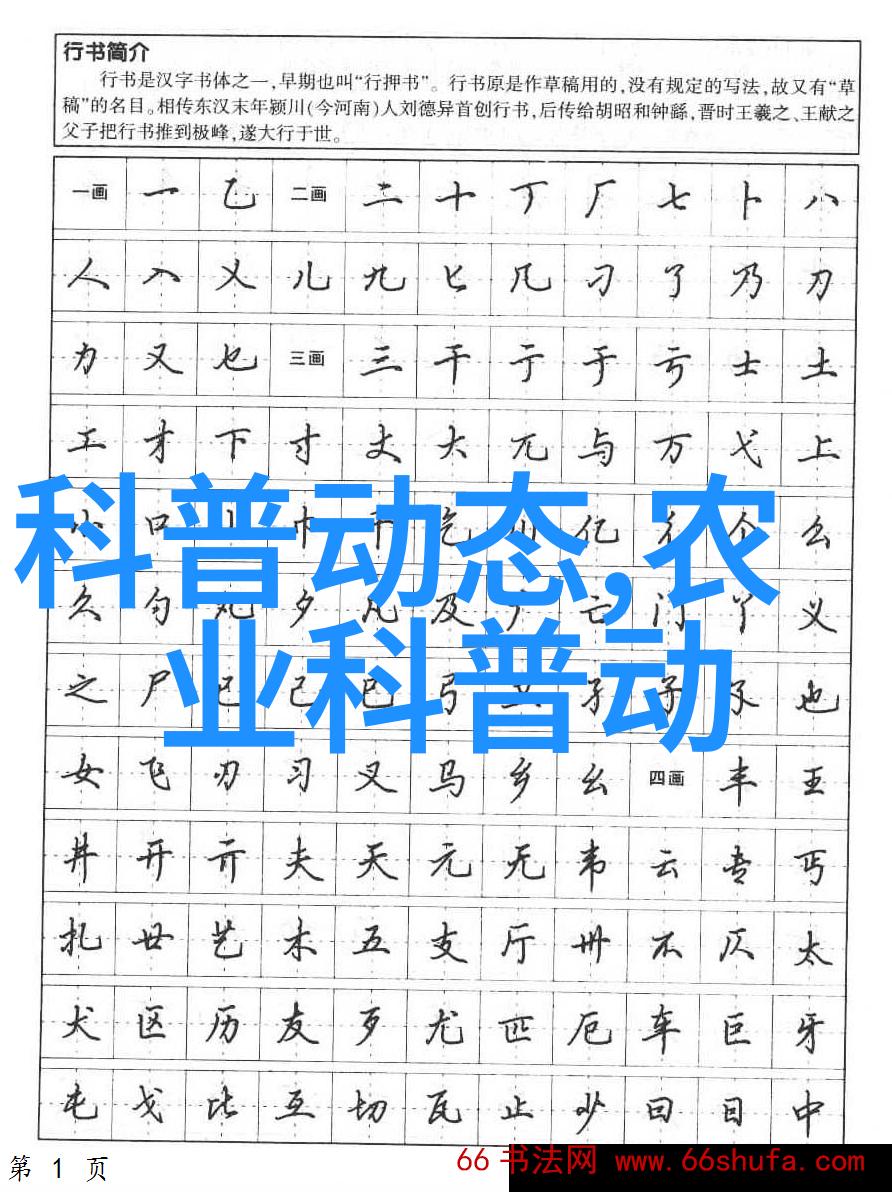 行书简介
行书是汉字书体之一,早期也叫“行押书”。行书原是作草稿用的,没有规定的写法,故又有“草
稿”的名目。相传东汉末年颍川(今河南)人刘德异首创行书,后传给胡昭和钟繇,晋时王羲之、王献之
父子把行书推到极峰,遂大行于世。
一画 一 乙 二画 二 十 丁 厂 七 卜 八
人 入 乂 儿 九 匕 几 刁 了 乃 刀
力 又 乜 三画 三 干 亍 于 亏 士 土
工 才 下 寸 丈 大 兀 与 万 弋 上
小 口 巾 千 乞 川 亿 彳 个 么
科普动态,农
久 勺 丸 夕 凡 及 广 亡 门 丫 义
业科普动
之 尸 已 己 巳 弓 卫 孑 子 孓 也
女 飞 刃 习 叉 马 乡 幺 四画 丰 王
井 开 亓 夫 天 元 无 韦 云 专 丐
扎 廿 艺 木 五 支 厅 卅 不 仄 太
犬 区 历 友 歹 尤 匹 厄 车 巨 牙
屯 戈 比 互 切 瓦 止 少 曰 日 中
第 1 页
66书法网 www.66shufa.com